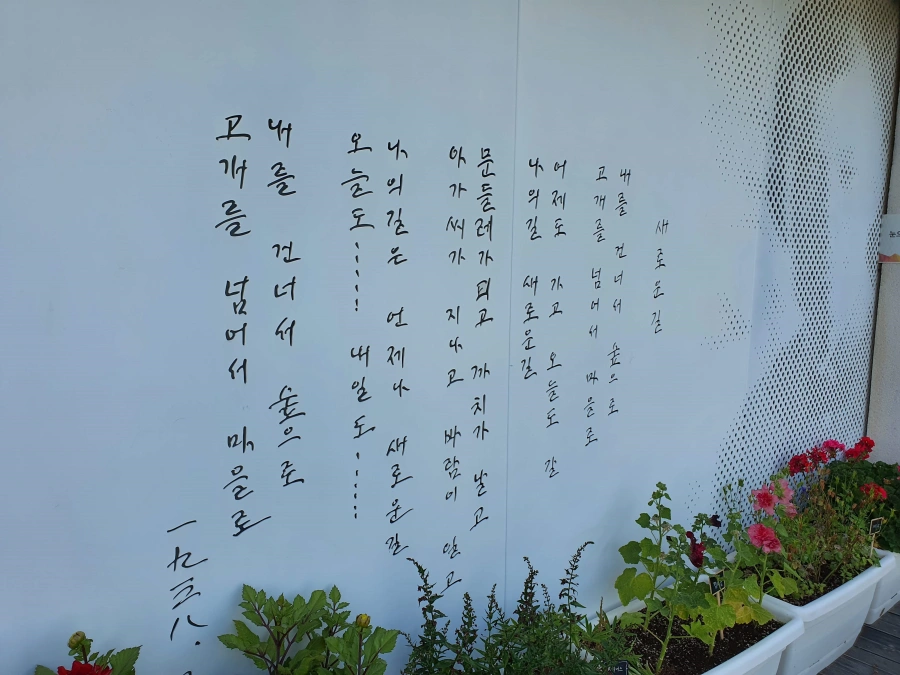 새로운길
내를 건너서 숲으로
고개를 넘어서 마을로
어제도 가고 오늘도 갈
나의길 새로운길
문들레가피고 까치가 날고
아가씨가 지나고 바람이 일고
나의길은 언제나 새로운길
오늘도…… 내일도……
내를 건너서 숲으로
고개를 넘어서 마을로
一九三八.